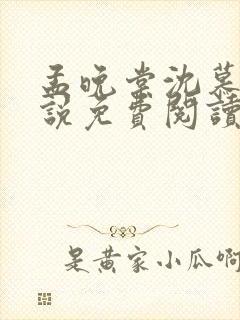 孟晚棠沈慕
说免費閱讀
是黄家小瓜啊